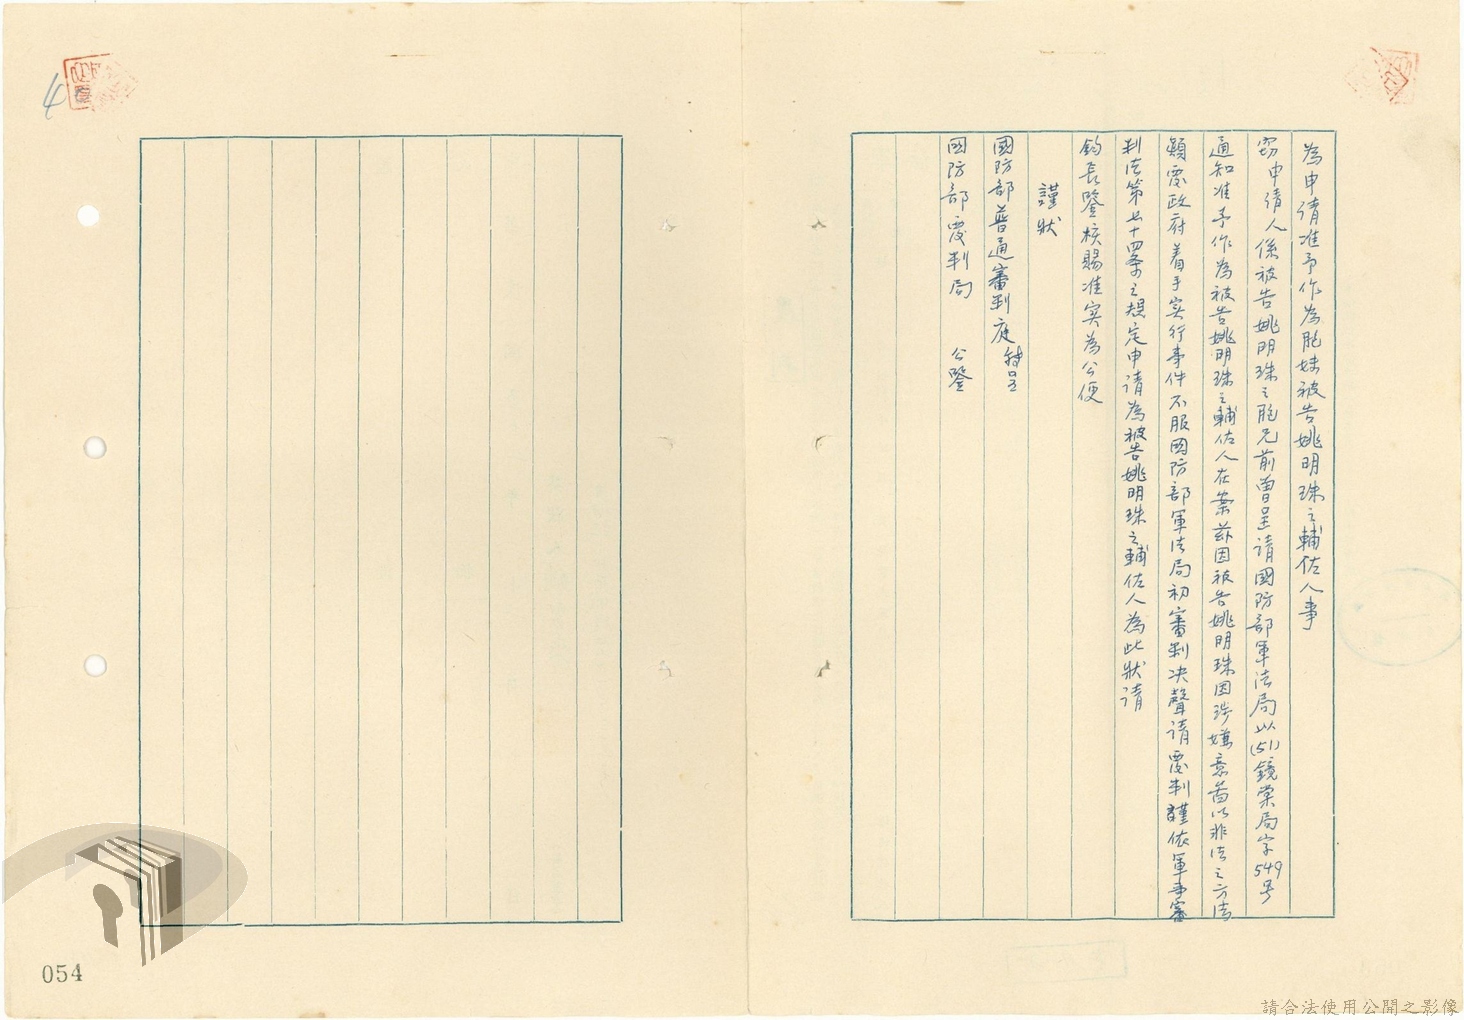 為申請准予作為胞妹被告姚明珠之輔佐人事
窃申請人係被告姚明珠之胞兄前曾呈請國防部軍法局以(51)鏡棠局字549号
通知准予作為被告姚明珠之輔佐人在案茲因被告姚明珠因涉嫌意啚以非法之方法
顛覆政府着手实行事件不服國防部軍法局初審判决聲請覆判謹依軍事審
判法第七十四条之規定申請為被告姚明珠之輔佐人為此狀請
鈞長鑒核賜准实為公便
謹狀
國防部普通審判庭 轉呈
國防部覆判局 公鑒
4
054
請合法使用公開之影像